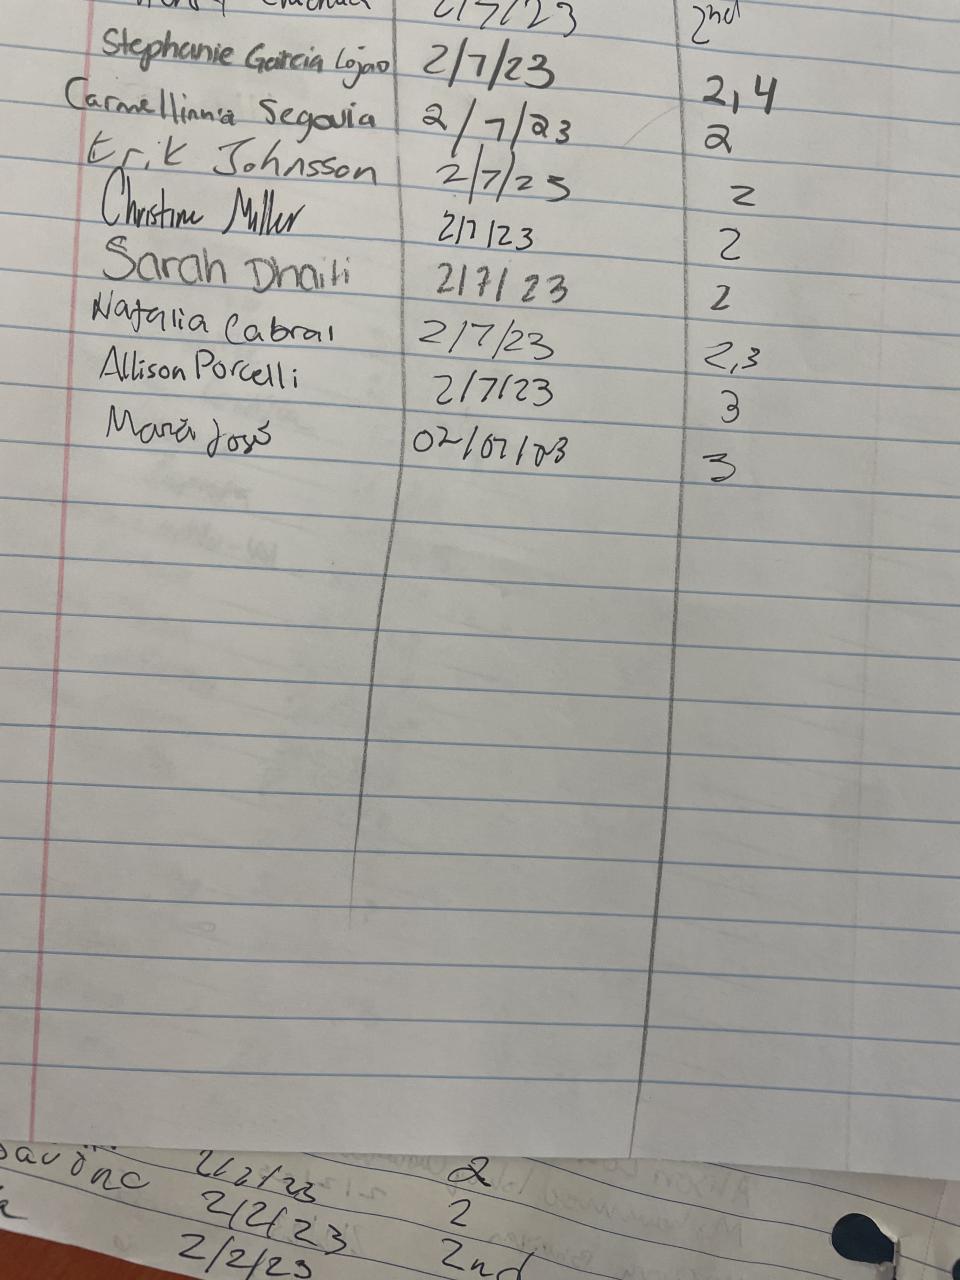 2/7/23 2nd
Stephanie Garcia Lojano 2/7/23 2,4
Carmellinnia Segovia 2/7/23 2
Erik Johnsson 2/7/23 2
Christine Miller 2/7/23 2
Sarah Dhaiti 2/7/23 2
Natalia Cabral 2/7/23 2,3
Allison Porcelli 2/7/23 3
Maria José 02/07/23 3
2/2/23 2
2/2/23 2
2/2/23 2nd